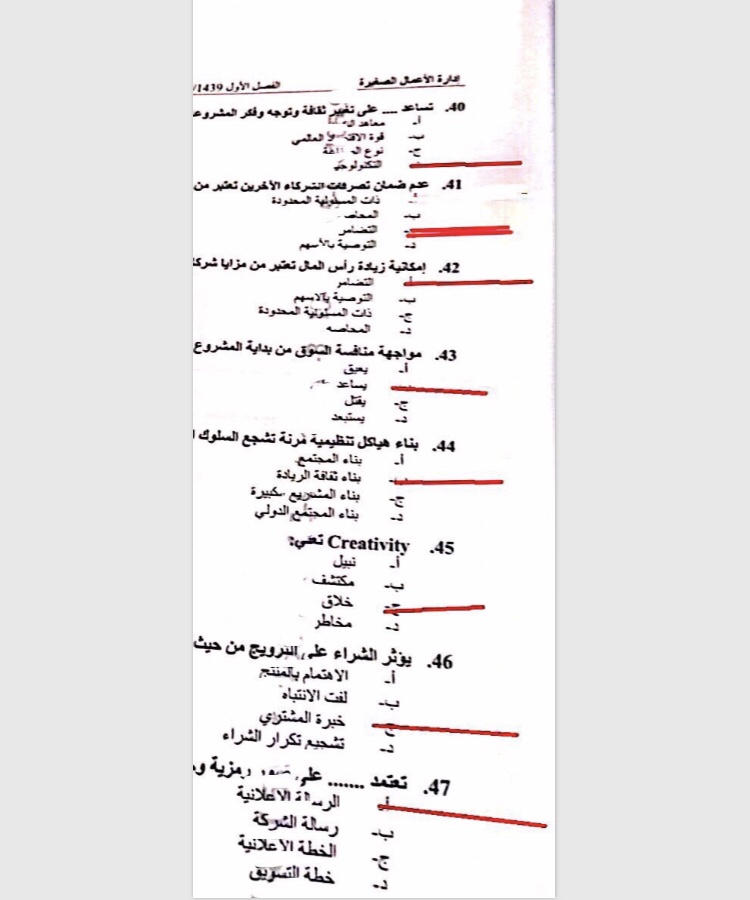 إدارة الأعمال الصغيرة الفصل الأول 1439/
40. تساعد .... على تغيير ثقافة وتوجه وفكر المشروع
أ- معاهد
ب- قوة الاقتصاد العالمي
ج- نوع
التكنولوجيا
41. عدم ضمان تصرفات الشركاء الأخرين تعتبر من
أ- ذات المسئولية المحدودة
ب- المحاصه
التضامن
د- التوصية بالأسهم
42. إمكانية زيادة رأس المال تعتبر من مزايا
أ- التضامن
ب- التوصية بالاسهم
ج- ذات المسئولية المحدودة
د- المحاصه
43. مواجهة منافسة السوق من بداية المشروع
أ- يعيق
يساعد
ج- يقتل
د- يستبعد
44. بناء هياكل تنظيمية مرنة تشجع السلوك
أ- بناء المجتمع
ب- بناء ثقافة الريادة
ج- بناء المشاريع الكبيرة
د- بناء المجتمع الدولي
45. Creativity تعني:
أ- نبيل
ب- مكتشف
ج- خلاق
د- مخاطر
46. يؤثر الشراء على الترويج من حيث
أ- الاهتمام بالمنتج
ب- لفت الانتباه
ج- خبرة المشتري
د- تشجيع تكرار الشراء
47. تعتمد ....... على
أ- الرسالة الاعلانية
ب- رسالة الشركة
ج- الخطة الاعلانية
د- خطة التسويق